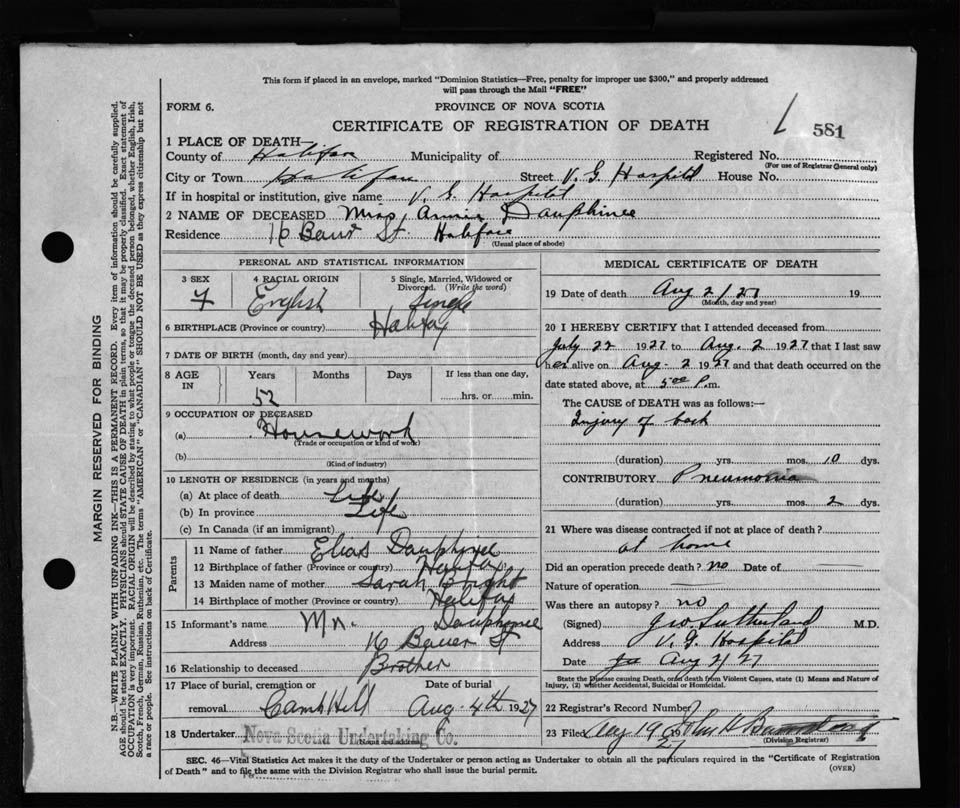 This form if placed in an envelope, marked "Dominion Statistics—Free, penalty for improper use $300," and properly addressed
will pass through the Mail "FREE"
FORM 6. PROVINCE OF NOVA SCOTIA
CERTIFICATE OF REGISTRATION OF DEATH
581
1 PLACE OF DEATH—
County of Halifax Municipality of Registered No.
(For use of Registrar General only)
City or Town Halifax Street V. G. Hospital House No.
If in hospital or institution, give name V. G. Hospital
2 NAME OF DECEASED Miss, Annie Dauphinee
Residence 16 Bauer St. Halifax
(Usual place of abode)
PERSONAL AND STATISTICAL INFORMATION
3 SEX 4 RACIAL ORIGIN 5 Single, Married, Widowed or Divorced. (Write the word)
F English Single
6 BIRTHPLACE (Province or country) Halifax
7 DATE OF BIRTH (month, day and year)
8 AGE IN Years Months Days If less than one day,
52 hrs. or min.
9 OCCUPATION OF DECEASED
(a) Housework
(Trade or occupation or kind of work)
(b)
(Kind of industry)
10 LENGTH OF RESIDENCE (in years and months)
(a) At place of death Life
(b) In province Life
(c) In Canada (if an immigrant)
Parents
11 Name of father Elias Dauphinee
12 Birthplace of father (Province or country) Halifax
13 Maiden name of mother Sarah
14 Birthplace of mother (Province or country) Halifax
15 Informant's name Mr. Dauphinee
Address 16 Bauer St
16 Relationship to deceased Brother
17 Place of burial, cremation or Date of burial
removal Camp Hill Aug 4th 1927
18 Undertaker Nova Scotia Undertaking Co.
(Name and address)
MEDICAL CERTIFICATE OF DEATH
19 Date of death Aug 2/27 19
(Month, day and year)
20 I HEREBY CERTIFY that I attended deceased from
July 22 1927 to Aug. 2 1927 that I last saw
her alive on Aug. 2 1927 and that death occurred on the
date stated above, at 5.00 P.m.
The CAUSE of DEATH was as follows:—
Injury of back
(duration) yrs. mos. 10 dys.
CONTRIBUTORY Pneumonia
(duration) yrs. mos. 2 dys.
21 Where was disease contracted if not at place of death?
at home
Did an operation precede death? no Date of
Nature of operation
Was there an autopsy? no
(Signed) Geo. Sutherland M.D.
Address V. G. Hospital
Date Aug 2/27
State the Disease causing Death, or in death from Violent Causes, state (1) Means and Nature of
Injury, (2) whether Accidental, Suicidal or Homicidal.
22 Registrar's Record Number
23 Filed Aug 19 27 John
(Division Registrar)
SEC. 46—Vital Statistics Act makes it the duty of the Undertaker or person acting as Undertaker to obtain all the particulars required in the "Certificate of Registration
of Death" and to file the same with the Division Registrar who shall issue the burial permit. (OVER)
MARGIN RESERVED FOR BINDING
N.B.—WRITE PLAINLY WITH UNFADING INK—THIS IS A PERMANENT RECORD. Every item of information should be carefully supplied.
AGE should be stated EXACTLY. PHYSICIANS should STATE CAUSE OF DEATH in plain terms, so that it may be properly classified. Exact statement of
OCCUPATION is very important. RACIAL ORIGIN will be described by stating to what people or tongue the deceased person belonged, whether English, Irish,
Scotch, French, German, Russian, Ruthenian, etc. The terms "AMERICAN" or "CANADIAN" SHOULD NOT BE USED as they express citizenship but not
a race or people. See instructions on back of Certificate.